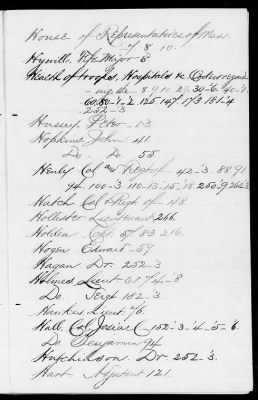 House of Representatives of Mass.
7. 8. 10.
Hywill. Fife Major 5
Health of troops, Hospitals &c Orders regard
-ing the - 8.9.10. 29. 30-'6. 40-'1.
60.80-'1-'2 125 147. 173 181-'4
252-3
Hussey Peter - 13
Hopkins John 41.
Do. Do 55
Henly Col and Regt of 42-'3. 88.91
94. 100-3. 110-13-'15-'18 250-9 262-3
Hatch Col & Regt of - 48.
Hollister Lieutenant 266.
Holden Capt 57 83 216.
Hogen Edward - 59.
Hagan Dr. 252-3
Holmes Lieut 61 74-8
Do Sergt 152-'3
Hawkes Lieut 76.
Hall. Col Josias C 152-'3-'4-'5-'6.
Do Benjamin 94
Hutchinson Dr 252-3.
Hart Adjutant 121.